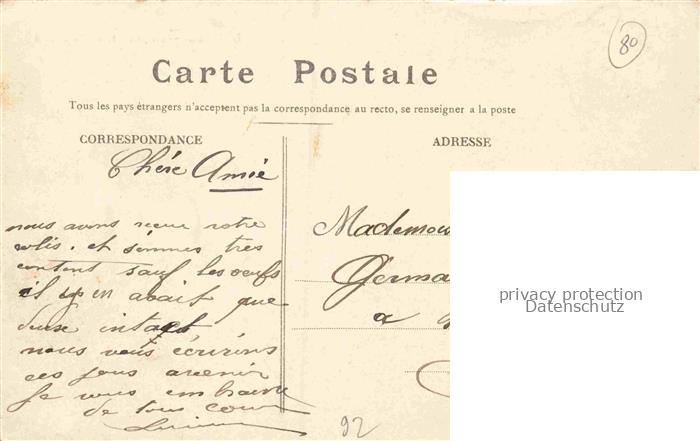 80
Carte Postale
Tous les pays étrangers n'acceptent pas la correspondance au recto, se renseigner a la poste
CORRESPONDANCE
ADRESSE
Chére Amie
nous avons recue votre
colis. et sommes tres
content sauf les oeufs
il y en avait que
deux intact
nous vous écrirons
ces jours avenir
Je vous embrasse
de tous coeur
Mademoi
Germa
a
privacy protection
Datenschutz
92